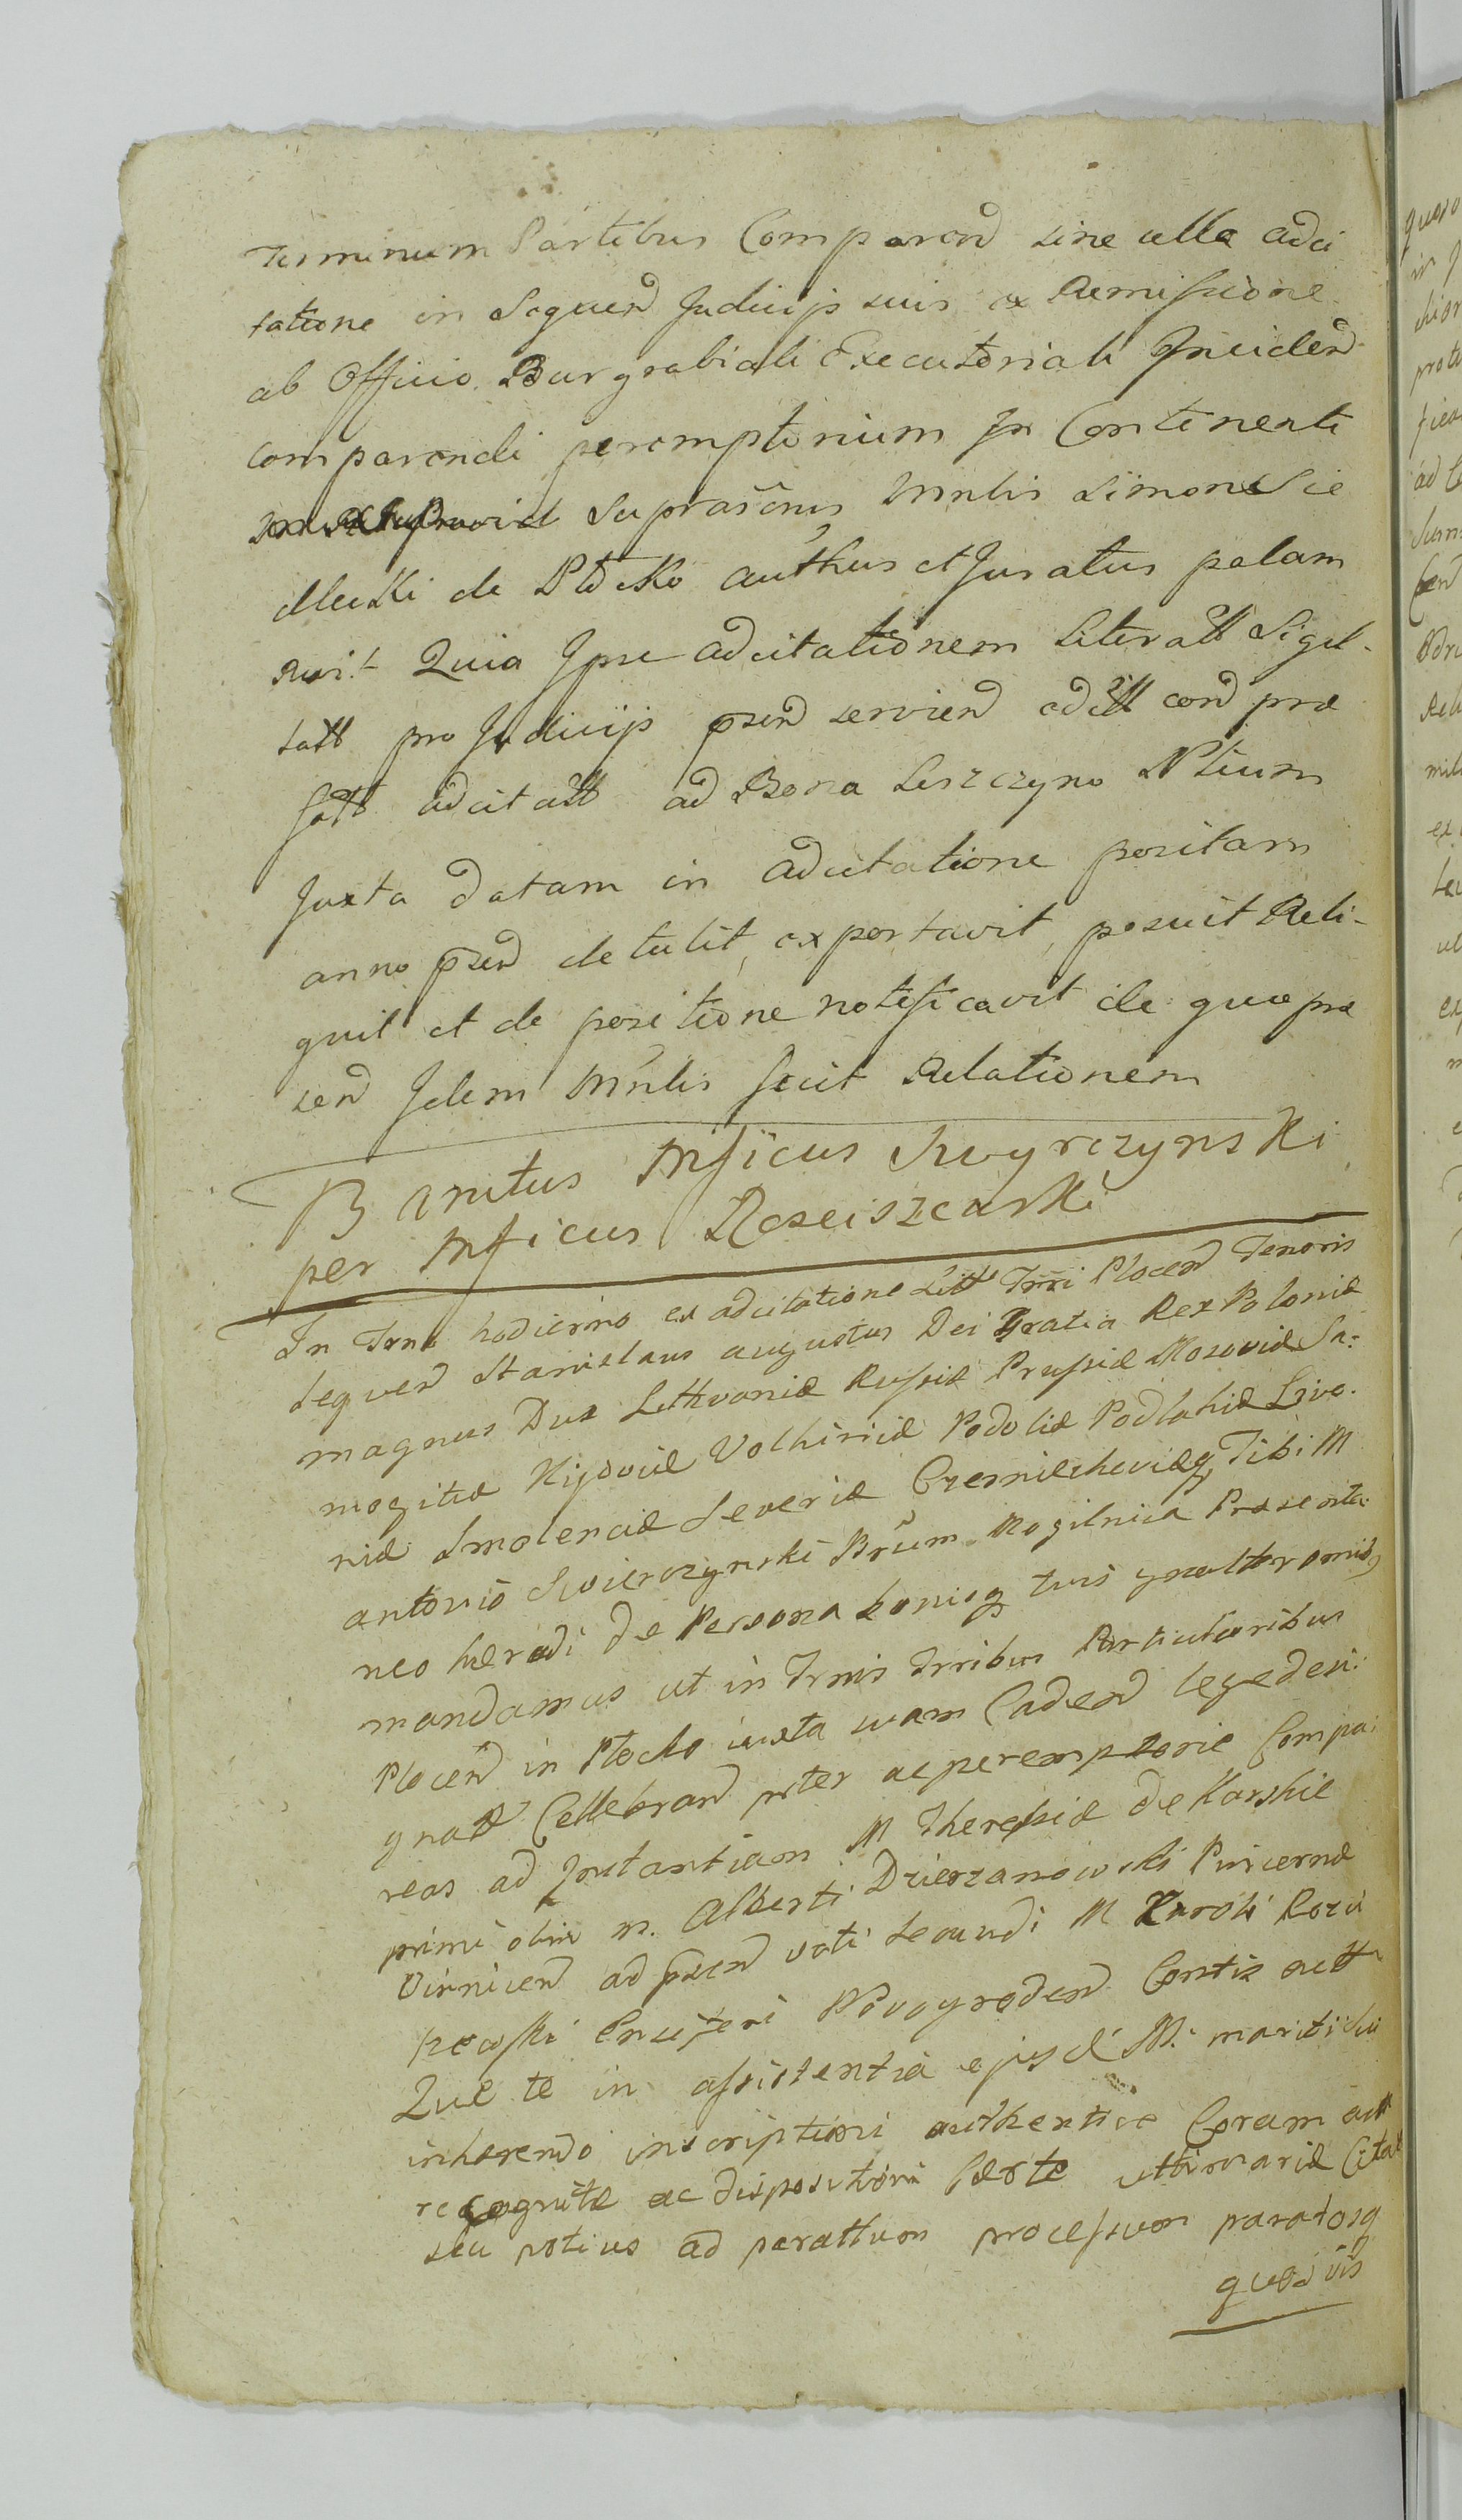 Terminum Partibus Comparend sine ulla adci
tatione in Sequend Judicijs suis ex Remissione
ab Officio Burgrabiali Executoriali Inciden
comparendi peremptorium In Continenti
Suprascrus Mnlis Simon Sie
de Plocko authus et Juratus palam
Quia Ipse adcitationem Literatt Sigil-
latt pro Judicijs psend serviend cond præ
fatt adcitatt ad Bona Leszczyno Nlium
Juxta datam in adcitatione positam
anno psend detulit, exportavit, posuit Reli-
quit et de positione notificavit de quo præ
send Idem Mnlis fecit Relationem
Banitus Mficus Swyrczynski
per Mficus Rosciszewski
In Trno hodierno ex adcitatione Litt Trri Plocen Tenoris
seqven Stanislaus augustus Dei Gratia Rex Poloniæ
magnus Dux Lithvaniæ Russiæ Prussiæ Masoviæ Sa-
mogitiæ Kijoviæ Volhiniæ Podoliæ Podlahiæ Livo-
niæ Smolenciæ Severiæ Czerniechoviæq Tibi M
antonio Swierczynski Brum Mogilnica Præsenta
neo hæredi de Persona bonisq tuis gnalter omibq
mandamus ut in Trnis Trribus Particularibus
Plocen in Plocko iuxta suam Caden lege desi-
gnatt Cellebran pnter ac peremptorie Compa-
reas ad Instantiam M Theressiæ de Karskie
primi olim M. Alberti Dzierzanowski Pincernæ
Vinnicen ad psen voti secundi M Karoli Rozci
szewski Ensiferi Novogroden Contis actt
Quæ te in assistentia ejusd M. mariti sui
inhærendo inscriptioni authenticæ Coram actt
recognitæ ac dispositioni Certæ Cita
seu potius ad paratum processum paratosq
quod vis